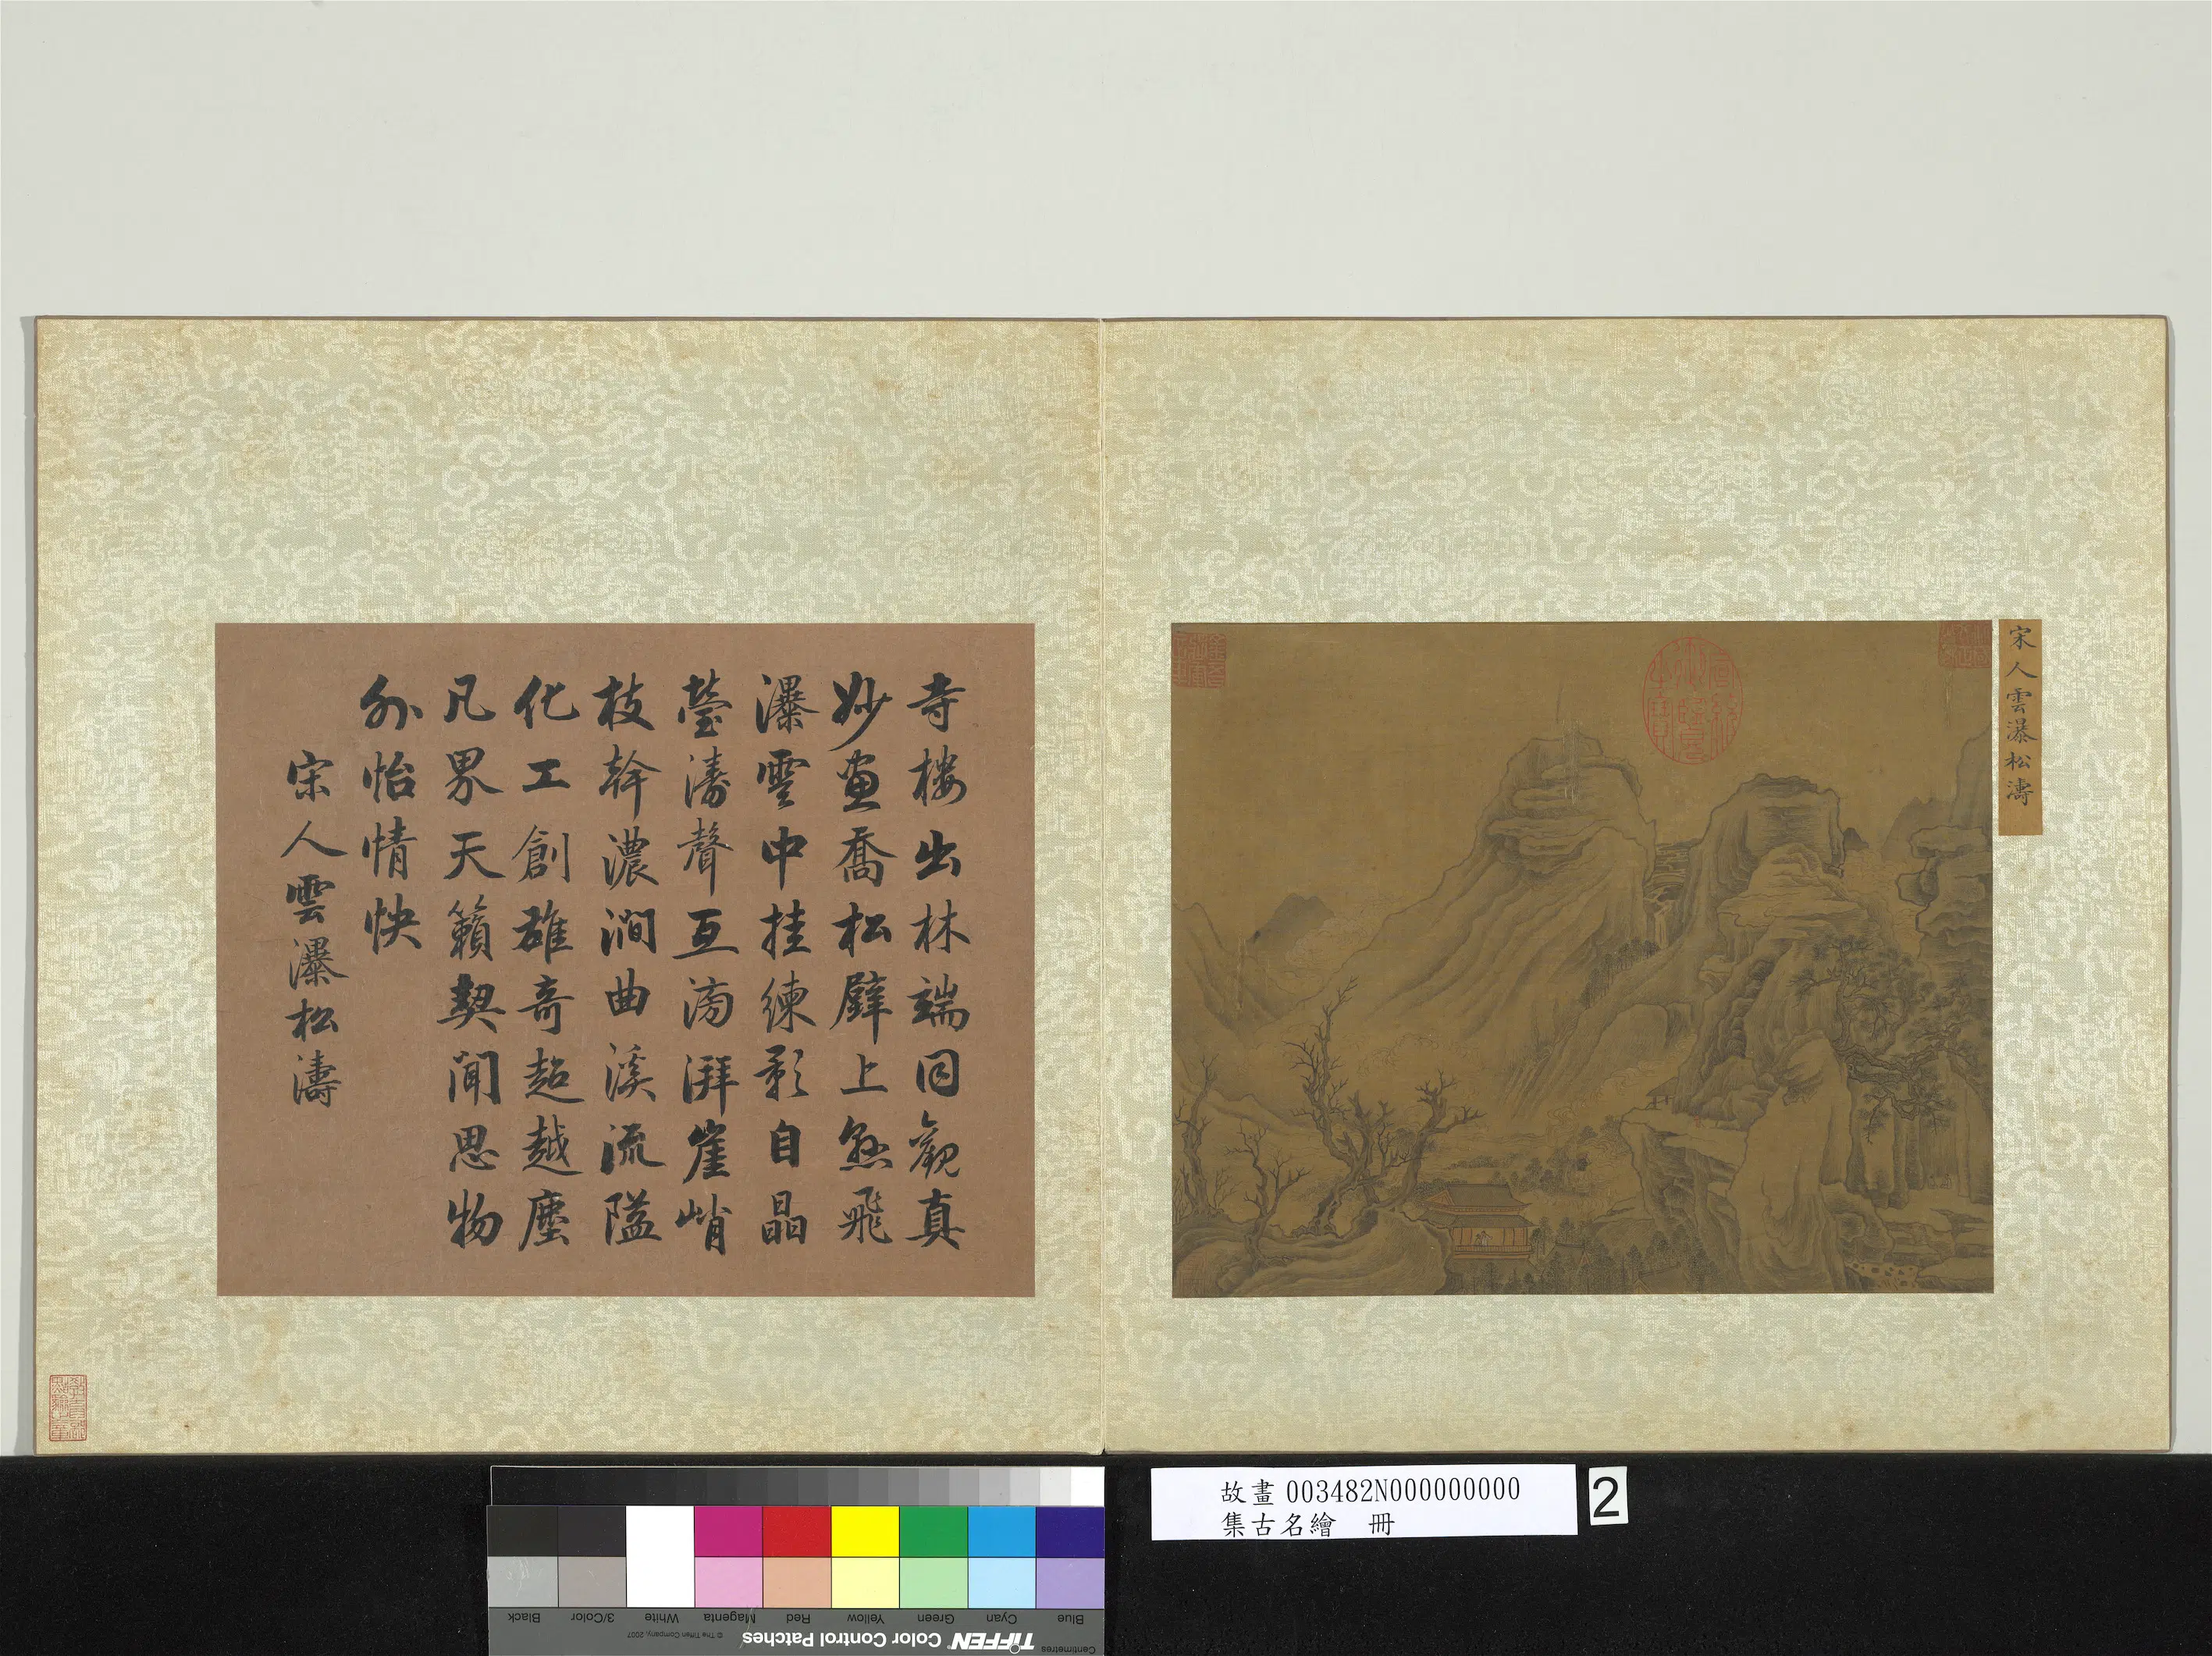 宋人雲瀑松濤
寺樓出林端同觀真
妙畫喬松壁上懸飛
瀑雲中挂練影自晶
瑩濤聲互滂湃崖峭
枝幹濃澗曲溪流隘
化工創雄奇超越塵
凡界天籟契聞思物
外怡情快
宋人雲瀑松濤
故畫003482N000000000
集古名繪 冊
2
Blue Cyan Green Yellow Red Magenta White 3/Color Black
Centimetres TIFFEN Color Control Patches © The Tiffen Company, 2007